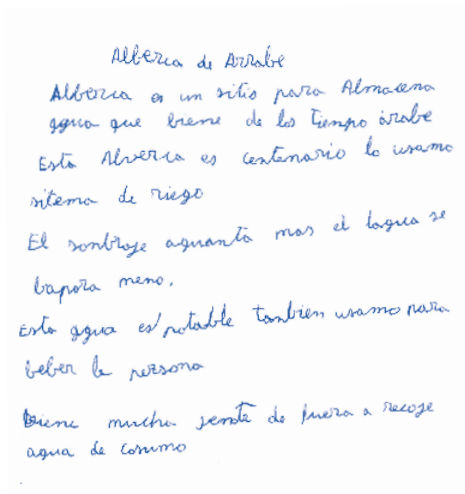 Alberca de Arrabe
Alberca es un sitio para Almacena
agua que biene de los tiempo árabe
Esta Alverca es centenario lo usamo
sitema de riego
El sonbraje aguanta mas el lagua se
bapora meno.
Esta agua es potable tanbien usamo para
beber la persona
Biene mucha jente de fuera a recoje
agua de consumo